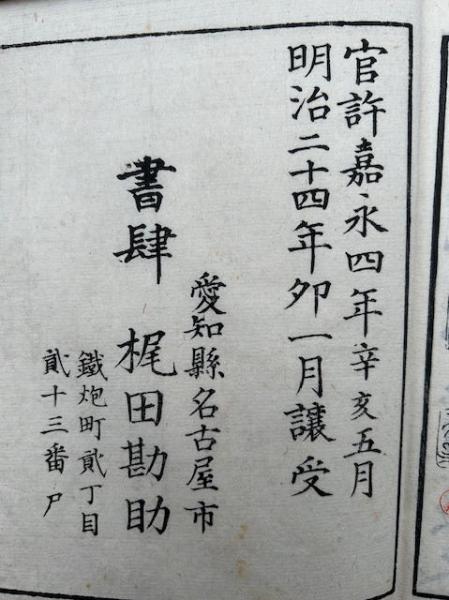 官許嘉永四年辛亥五月
明治二十四年卯一月讓受
愛知縣名古屋市
書肆 梶田勘助
鐵炮町貮丁目
貮十三番戸